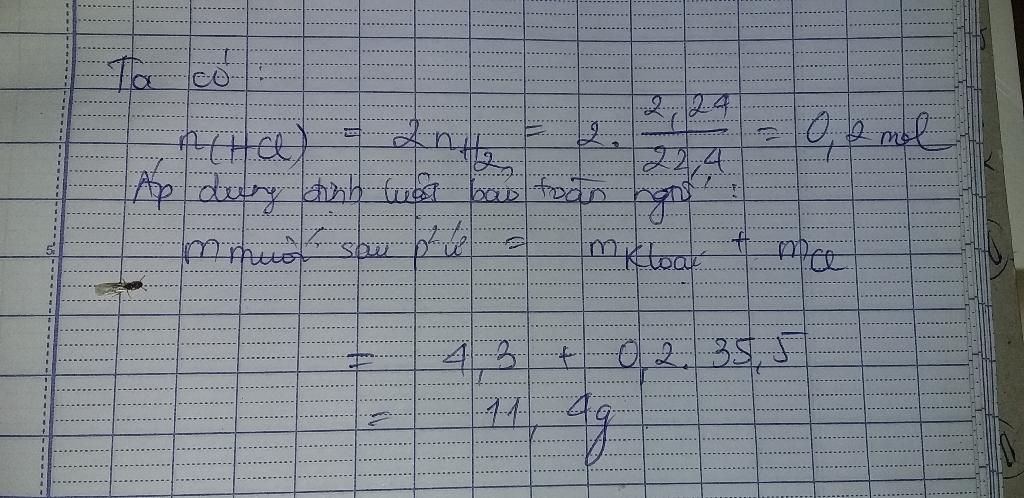 Ta có :
n(HCl) = 2n H2 = 2. 2,24 / 22,4 = 0,2 mol
Áp dụng định luật bảo toàn ngtố :
m muối sau pứ = m Kloại + m Cl
= 4,3 + 0,2. 35,5
= 11,4g